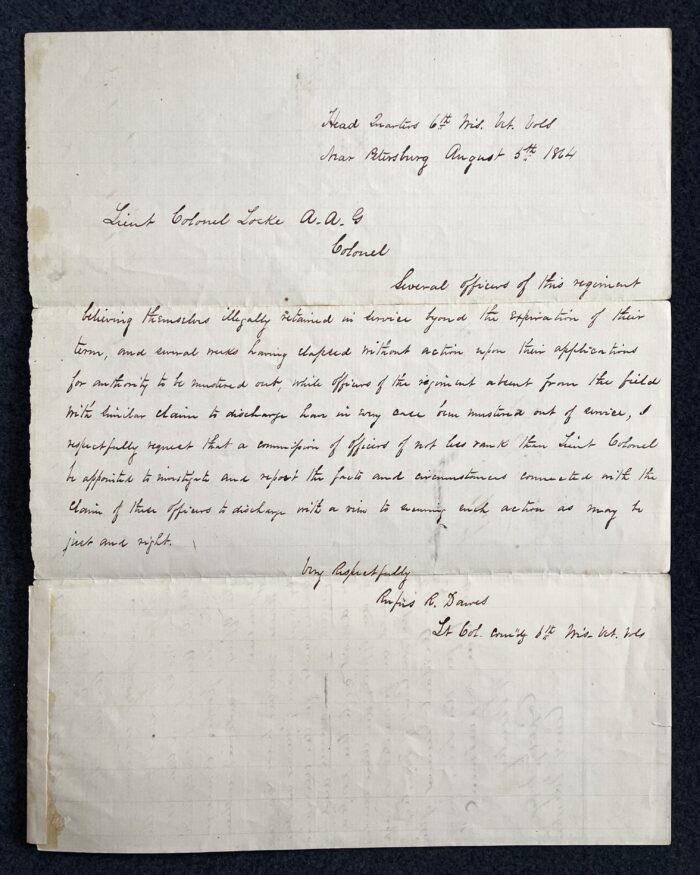 Head Quarters 6th Wis. Vet. Vols
Near Petersburg August 5th 1864
Lieut Colonel Locke A.A.G
Colonel
Several officers of this regiment
believing themselves illegally retained in service beyond the expiration of their
term, and several weeks having elapsed without action upon their applications
for authority to be mustered out, while officers of the regiment absent from the field
with similar claim to discharge have in every case been mustered out of service, I
respectfully request that a commission of officers of not less rank than Lieut Colonel
be appointed to investigate and report the facts and circumstances connected with the
claim of these officers to discharge with a view to securing such action as may be
just and right.
Very Respectfully
Rufus R. Dawes
Lt Col. com'dg 6th Wis. Vet. Vols